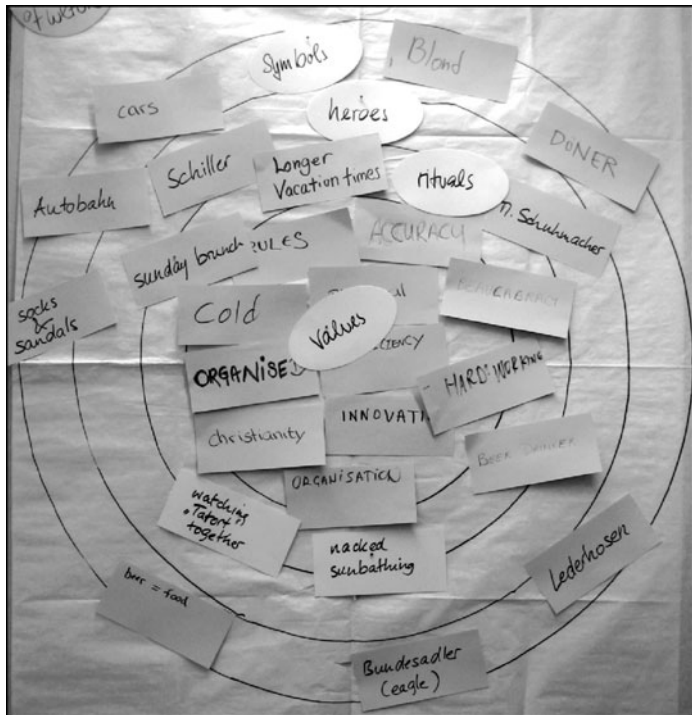 of culture
Symbols
Blond
cars
heroes
DÖNER
Schiller
Longer
Vacation times
rituals
Autobahn
M. Schuhmacher
sunday brunch
RULES
ACCURACY
socks
&
sandals
Cold
BEAUCRERACY
Values
ORGANISED
CIENCY
HARD-WORKING
christianity
INNOVATI
BEER DRINKER
ORGANISATION
watching
"Tatort"
together
nacked
sunbathing
Lederhosen
beer = food
Bundesadler
(eagle)